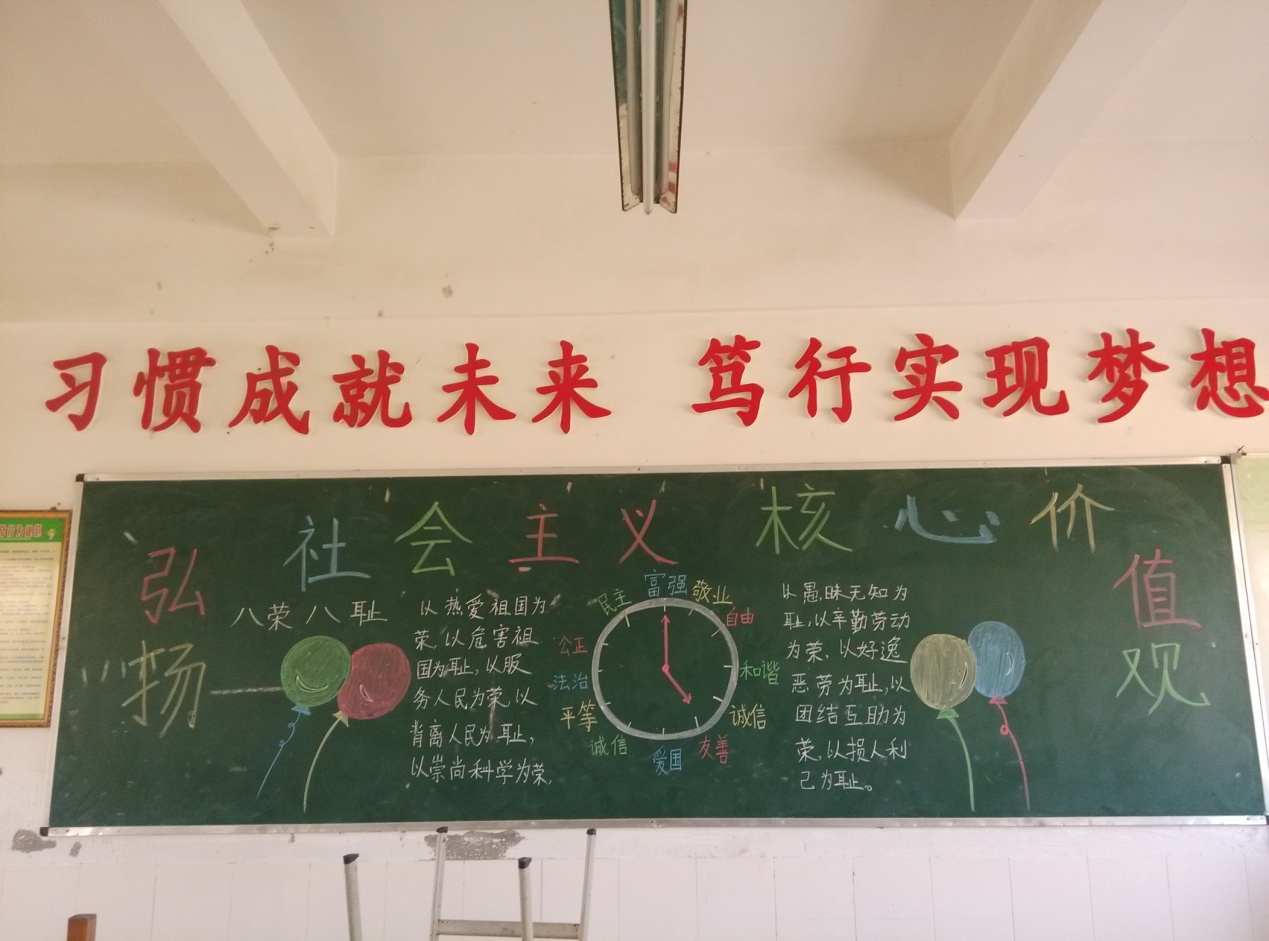 习惯成就未来 笃行实现梦想
弘扬社会主义核心价值观
八荣八耻
以热爱祖国为
荣,以危害祖
国为耻,以服
务人民为荣,以
背离人民为耻,
以崇尚科学为荣,
富强
敬业
自由
和谐
诚信
友善
爱国
诚信
平等
法治
公正
民主
以愚昧无知为
耻,以辛勤劳动
为荣,以好逸
恶劳为耻,以
团结互助为
荣,以损人利
己为耻。